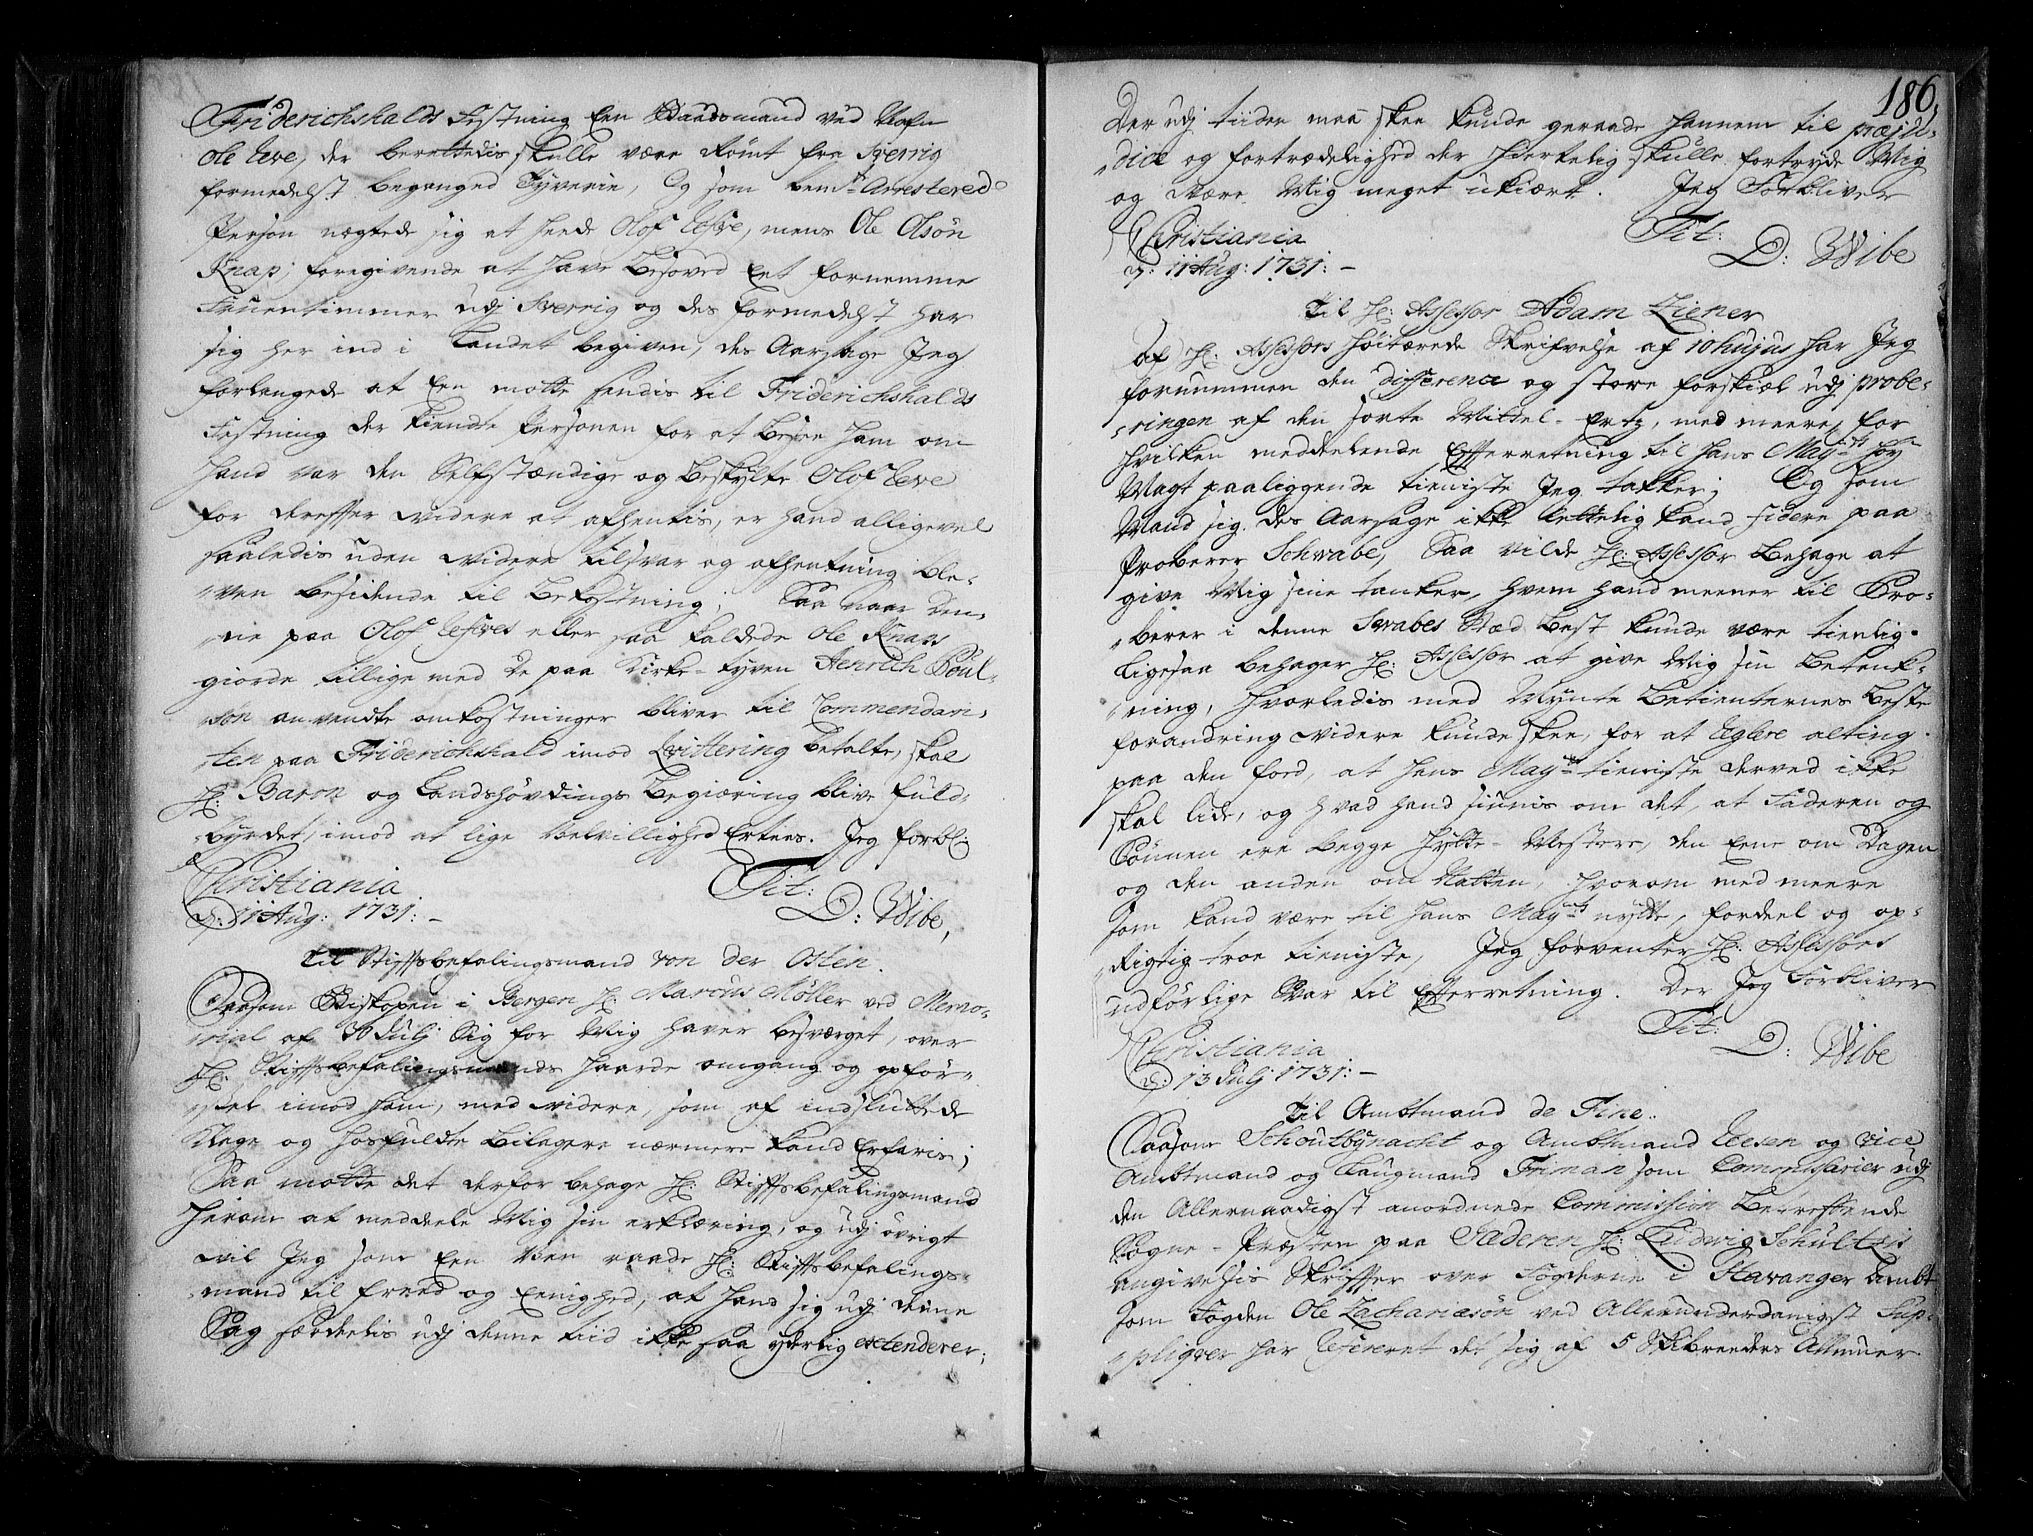 Friderichshalds Festning Een Baadsmand ved Nafn
Ole Leve, der berettedis skulle være Rømt fra Sverrig
formedelst beganged Tyverie, Og som bemte Arrestered
Person nægtede sig at heede Olof Leve, mens Ole Olsøn
Knap; foregivende at have besoved Eet fornemme
Fruentimmer udj Sverrig og des formedelst har
sig her ind i Landet begiven, des Aarsage Jeg
forlangede at Een motte sendis til Friderichshalds
Festning der kiendte Personen for at besee ham om
hand var den Selfstændige og beskylte Olof Leve
for derefter videre at afhentis, er hand alligevel
saaledis uden videre tilsvar og afhentning ble-
ven besidende til bekostning; Saa naar den-
ne paa Olof Leves eller saa kaldede Ole Knaps
giorde tillige med de paa Kirke-tyven Henrich Poul-
søn anvendte omkostninger bliver til Commendan-
ten paa Friderichshald imod Qvittering betalte, skal
Hr: Baron og Landshøvdings begiæring blive fuld-
byrdet, imod at lige Velvillighed Ertees. Jeg forbl:
Christiania Tit:
d: 11 Aug: 1731:- D: Wibe,
Til Stiftsbefalingsmand von der Osten.
Saasom Biskopen i Bergen Hr: Marcus Møller ved Memo-
rial af 30 Julj sig for Mig haver besværget, over
Hr: Stiftsbefalingsmands haarde omgang og opfør-
sel imod ham, med videre, som af indsluttede
Klage og hosfuldte bilagere nærmere kand Erfaris;
Saa motte det derfor behage Hr: Stiftsbefalingsmand
herom at meddeele Mig sin erklæring, og udj øvrigt
vil Jeg som Een ven raade Hr: Stiftsbefalings-
mand til freed og Eenighed, at hand sig udj diine
Sag særdeelis udj denne tiid ikke saa yderlig extenderer;
186,
Der udj tiiden maa skee kunde geraade hannem til præju-
dice og fortrædelighed der hiertelig skulle fortryde Mig
og være Mig meget ukiært. Jeg Forbliver
Christiania Tit:
d: 11 Aug: 1731:- D: Wibe
Til Hr: Assessor Adam Ziener
Af Hr: Assessors høitærede Skrifvelse af 10 hujus har Jeg
fornummen den difference og store forskiæl udj probe-
ringen af den sorte Mittel-Ertz, med meere, for
hvilken meddelende Efterretning til Hans Mayts høy
Magt paaliggende tieniste Jeg takker; Og som
Mand sig des Aarsage ikke lettelig kand fidere paa
Proberer Schwabe, Saa vilde Hr: Assessor behage at
give Mig sine tanker, hvem hand meener til Pro-
berer i denne Swabes Stæd best kunde være tienlig.
Ligesaa behager Hr: Assessor at give Mig sin betenk-
ning, hvorledis med Mynte betienternes beste
forandring videre kunde skee, for at Eglere alting
paa den ford, at hans Mayts tieniste derved ikke
skal lide, og hvad hand siunis om det, at Faderen og
Sønnen ere begge Hytte-Mestere, den Eene om Dagen
og den anden om Natten, hvorom med meere
som kand være til hans Mayts nytte, fordeel og op-
Rigtig troe tieniste, Jeg forventer Hr: Assessors
udførlige Svar til Efterretning. Der Jeg Forbliver
Christiania Tit:
d: 13 Julj 1731:- D: Wibe
Til Ambtmand de Fine.
Saasom Schoutbynacht og Ambtmand Leesen og vice
Ambtmand og Laugmand Friman som Commissarier udj
den Allernaadigst anordnede Commission betreffende
Sogne-Præsten paa Jæderen Hr: Ludwig Schultzis
angivelsis Skrifter over fogderne i Stavanger Ambt
som fogden Ole Zachariæsøn ved Allerunderdanigst Sup-
pliqver har refereret det sig af 5 Skibreeders Almuer